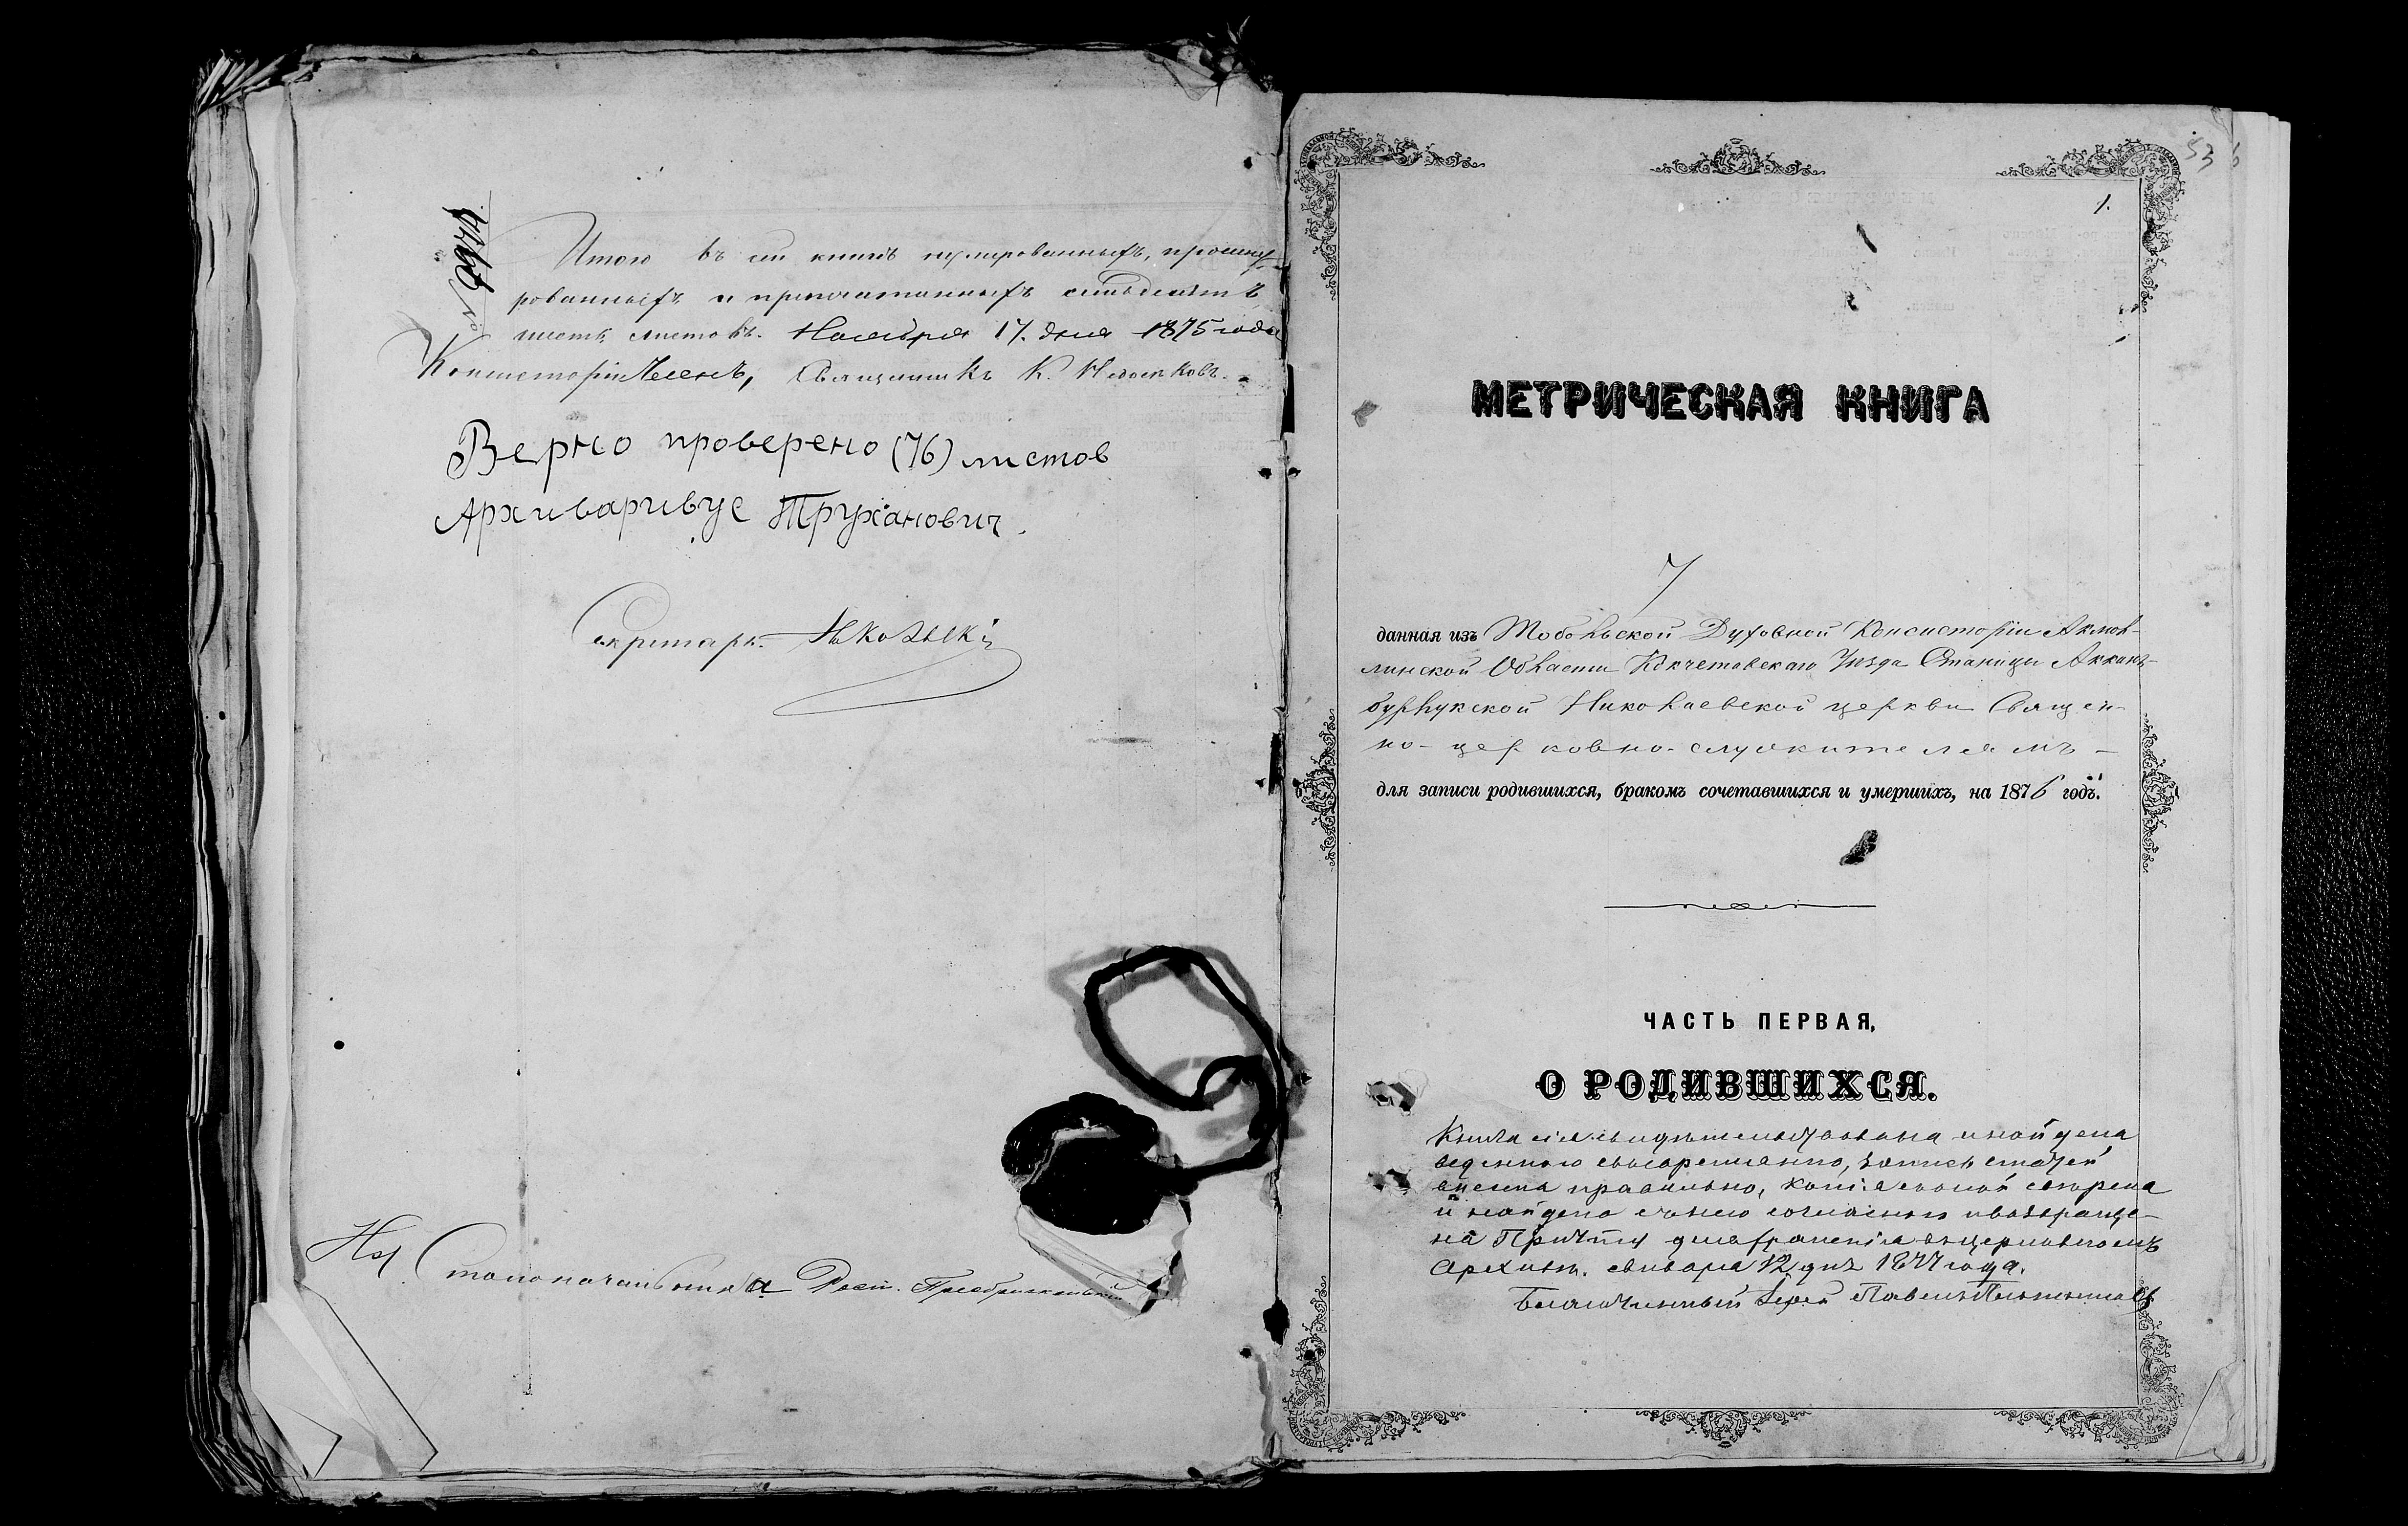 № 7974
Итого въ сей книгѣ нумерованныхъ, прошну-
рованныхъ и припечатанныхъ семьдесятъ
шесть листовъ. Ноября 17. дня 1875 года
Консисторіи Членъ, Священникъ К. Недосековъ.
Верно проверено (76) листов
Архивариус Труханович.
Секретарь
Столоначальника Преображенскій
53
1.
МЕТРИЧЕСКАЯ КНИГА
7
данная изъ Тобольской Духовной Консисторіи Акмол-
линской Области Кокчетовскаго Уѣзда Станицы Аккан-
бурлукской Николаевской церкви Священ-
но-церковно-служителямъ –
для записи родившихся, бракомъ сочетавшихся и умершихъ, на 1876 годъ.
ЧАСТЬ ПЕРВАЯ,
О РОДИВШИХСЯ.
Книга сія свидѣтельствована и найдена
веденною своевременно, запись статей
внесена правильно, копія съ оной свѣрена
и найдена съ нею согласною и возвраще-
на Причту для храненія въ церковномъ
Архивѣ. Января 12 дня 1877 года.
Благочинный Іерей Павелъ